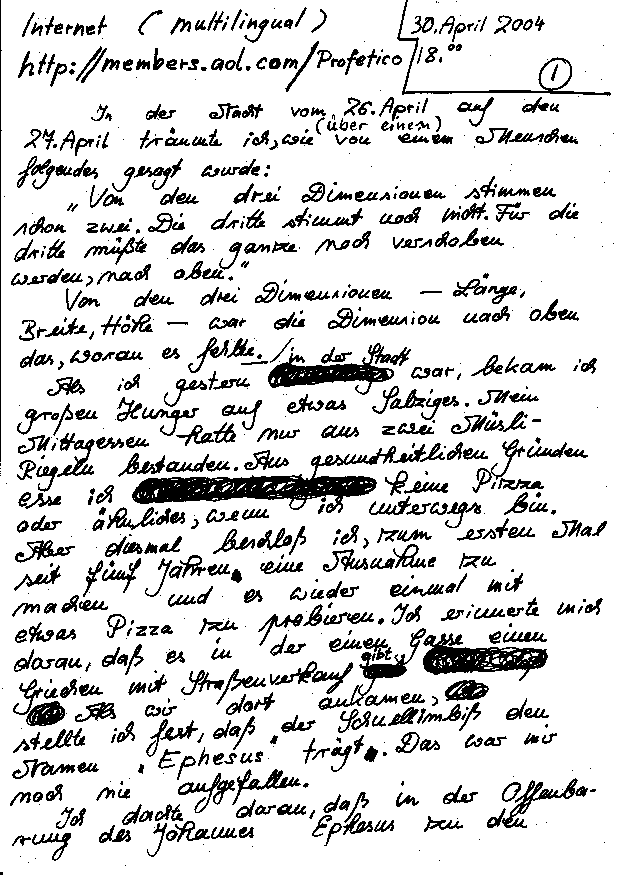 Internet (multilingual)
30. April 2004
http://members.aol.com/Profetico
18.⁰⁰
1
In der Nacht vom 26. April auf den
(über einem)
27. April träumte ich, wie von einem Menschen
folgendes gesagt wurde:
"Von den drei Dimensionen stimmen
schon zwei. Die dritte stimmt noch nicht. Für die
dritte müßte das ganze noch verschoben
werden, nach oben."
Von den drei Dimensionen — Länge,
Breite, Höhe — war die Dimension nach oben
das, woran es fehlte. / in der Stadt
Als ich gestern war, bekam ich
großen Hunger auf etwas Salziges. Mein
Mittagessen hatte nur aus zwei Müsli-
Riegeln bestanden. Aus gesundheitlichen Gründen
esse ich keine Pizza
oder ähnliches, wenn ich unterwegs bin.
Aber diesmal beschloß ich, zum ersten Mal
seit fünf Jahren eine Ausnahme zu
machen und es wieder einmal mit
etwas Pizza zu probieren. Ich erinnerte mich
daran, daß es in der einen Gasse einen
Griechen mit Straßenverkauf gibt.
Als wir dort ankamen,
stellte ich fest, daß der Schnellimbiß den
Namen "Ephesus" trägt. Das war mir
noch nie aufgefallen.
Ich dachte daran, daß in der Offenba-
rung des Johannes Ephesus zu den